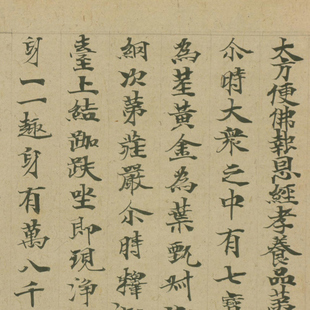 大方便佛報恩經孝養品苐
尒時大衆之中有七寶
為莖黃金為葉甄叔
網次苐莊嚴尒時釋
臺上結跏趺坐即現淨
身一一趣身有萬八千